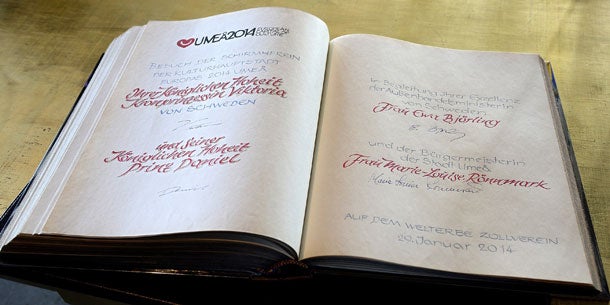 UMEÅ2014 EUROPEAN CAPITAL OF CULTURE
BESUCH DER SCHIRMHERRIN
DER KULTURHAUPTSTADT
EUROPAS 2014 UMEÅ
Ihre Königlichen Hoheit
Kronprinzessin Viktoria
VON SCHWEDEN
und Seiner
Königlichen Hoheit
Prinz Daniel
Daniel
In Begleitung Ihrer Exzellenz
der Außenhandelsministerin
von Schweden
Frau Ewa Björling
und der Bürgermeisterin
der Stadt Umeå
Frau Marie-Louise Rönnmark
AUF DEM WELTERBE ZOLLVEREIN
29. Januar 2014